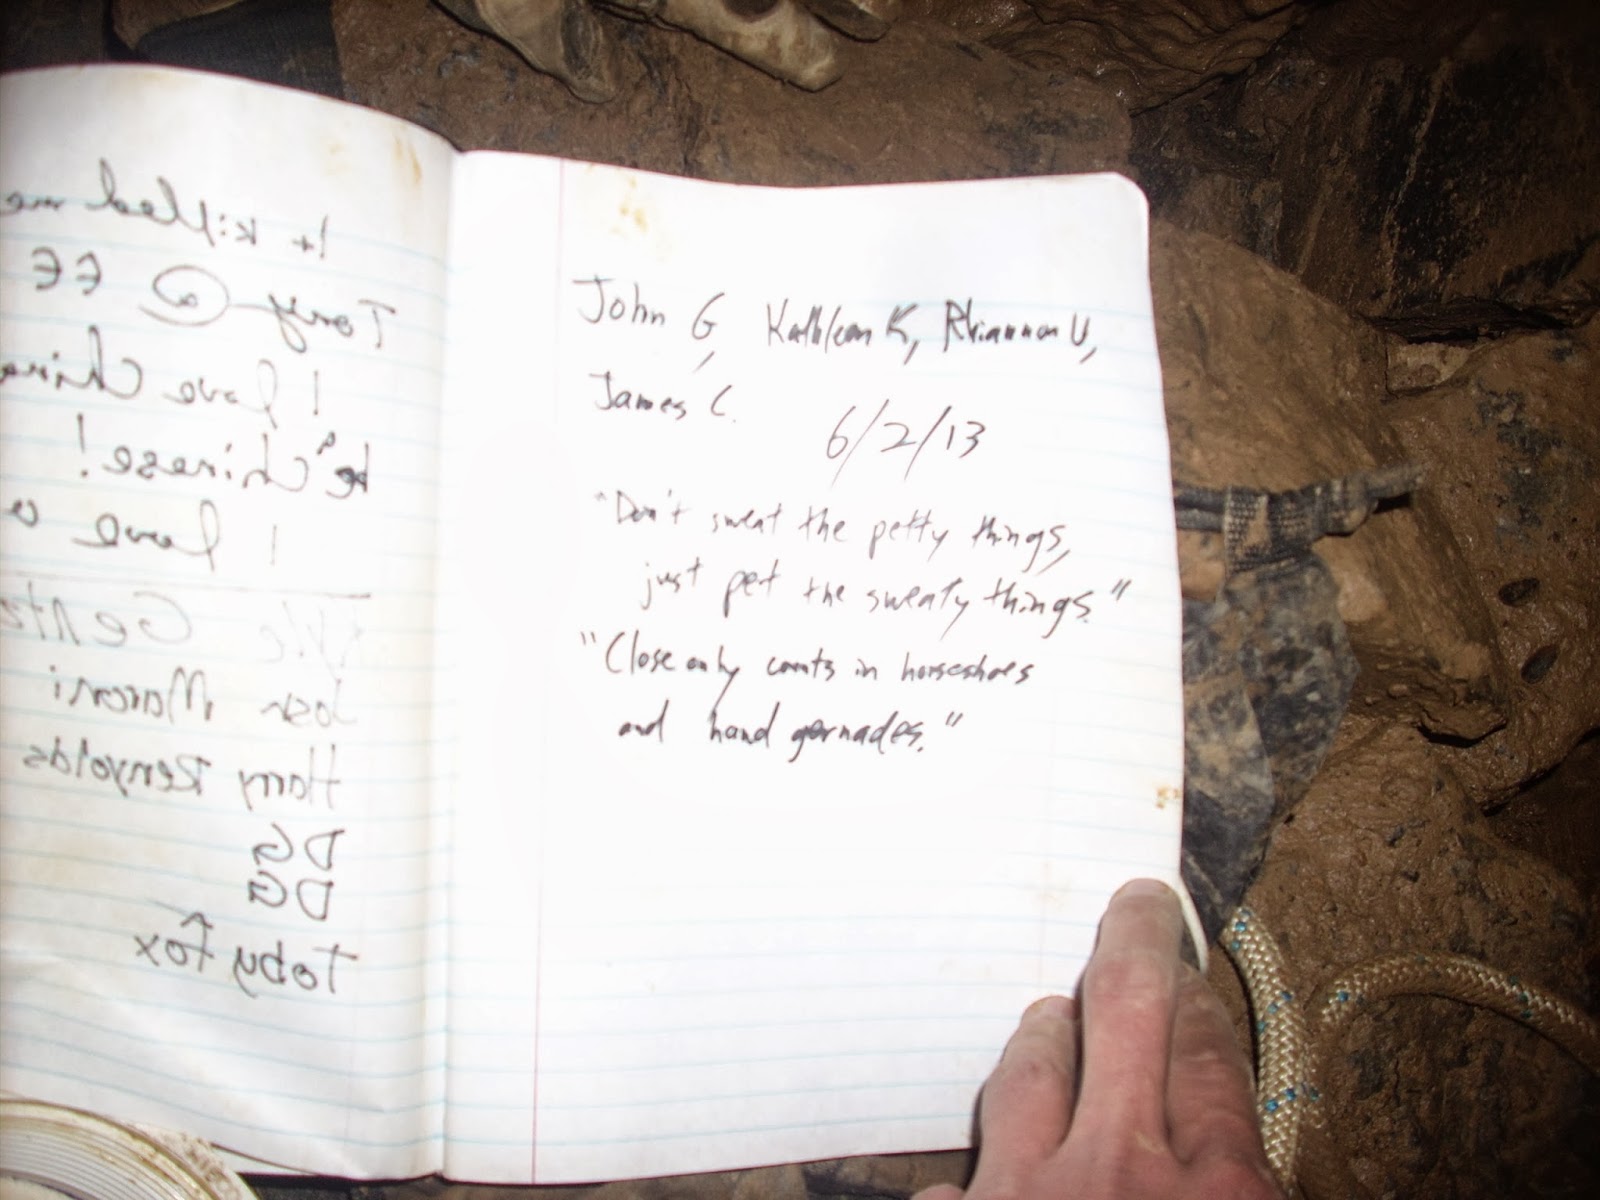 It killed me
Tony @ EE
I love China
be a Chinese!
I love
Kyle Gentz
Josh Marconi
Harry Renyolds
DG
DG
Toby Fox
John G, Kathleen K, Rhiannon U,
James C.
6/2/13
"Don't sweat the petty things,
just pet the sweaty things."
"Close only counts in horseshoes
and hand gernades."